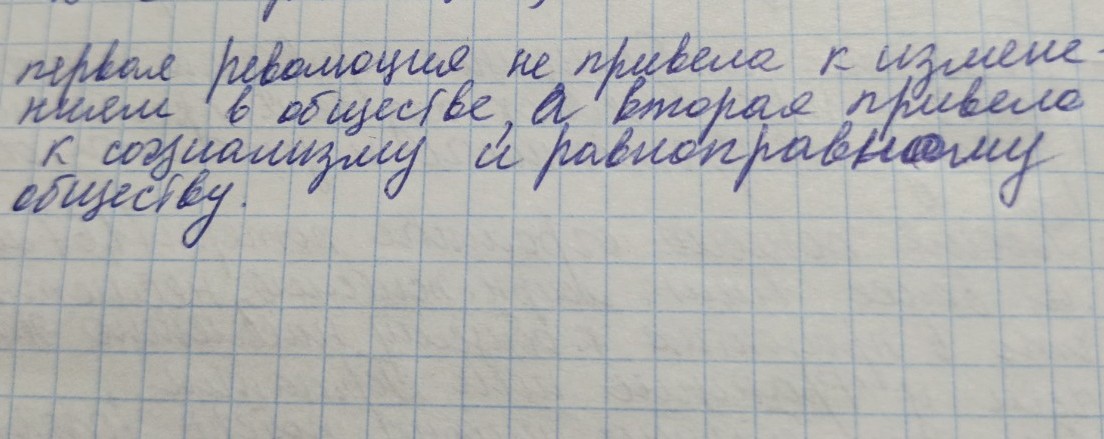 первая революция не привела к измене-
ниям в обществе, а вторая привела
к социализму и равноправному
обществу.